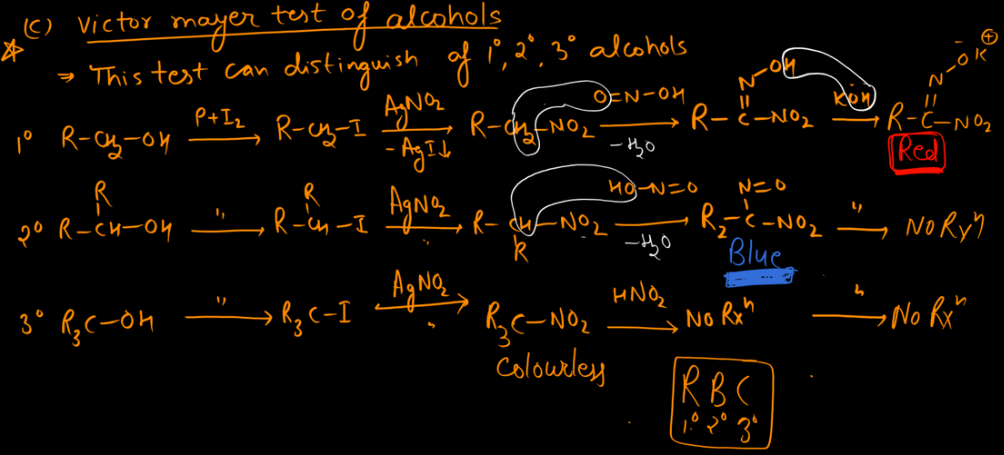 (C) Victor mayer test of alcohols
⇒ This test can distinguish of 1°, 2°, 3° alcohols
1° R-CH2-OH P+I2 → R-CH2-I AgNO2 -AgI↓ → R-CH2-NO2 O=N-OH -H2O → R-C-NO2 || N-OH KOH → R-C-NO2 || N-O⁻K⊕
Red
2° R-CH-OH R " → R-CH-I R AgNO2 " → R-CH-NO2 R HO-N=O -H2O → R2-C-NO2 N=O " → No Rxⁿ
Blue
3° R3C-OH " → R3C-I AgNO2 " → R3C-NO2 HNO2 → No Rxⁿ " → No Rxⁿ
Colourless
R B C
1° 2° 3°